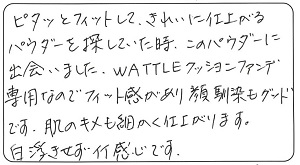 ピタッとフィットして、きれいに仕上がる
パウダーを探していた時、このパウダーに
出会いました。WATTLEクッションファンデ
専用なのでフィット感があり顔馴染もグッド
です。肌のキメも細かく仕上がります。
白浮きせず行感じです。